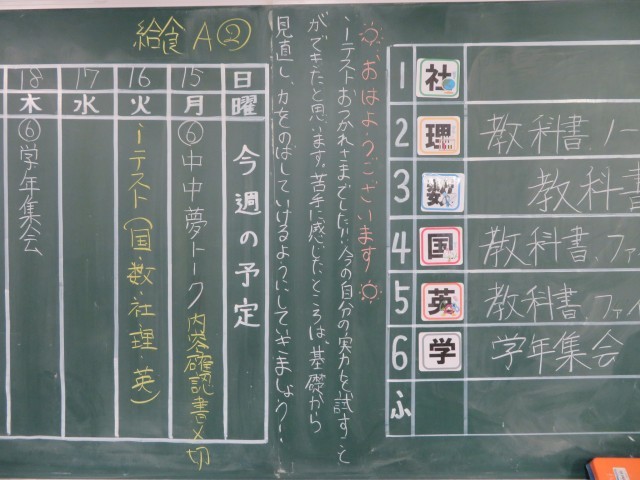 1 社
2 理 教科書、ノー
3 数 教科書
4 国 教科書、ファ
5 英 教科書、ファイ
6 学 学年集会
ふ
おはようございます
iテストおつかれさまでした!!今の自分の実力を試すこと
ができたと思います。苦手に感じたところは、基礎から
見直し、力をのばしていけるようにしていきましょう!
給食 A②
日曜 今週の予定
15 月 ⑥中中夢トーク 内容確認書〆切
16 火 iテスト(国・数・社・理・英)
17 水
18 木 ⑥学年集会